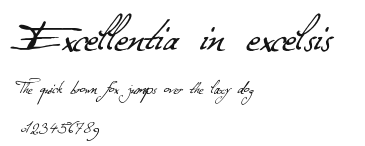 Excellentia in excelsis
The quick brown fox jumps over the lazy dog
0123456789